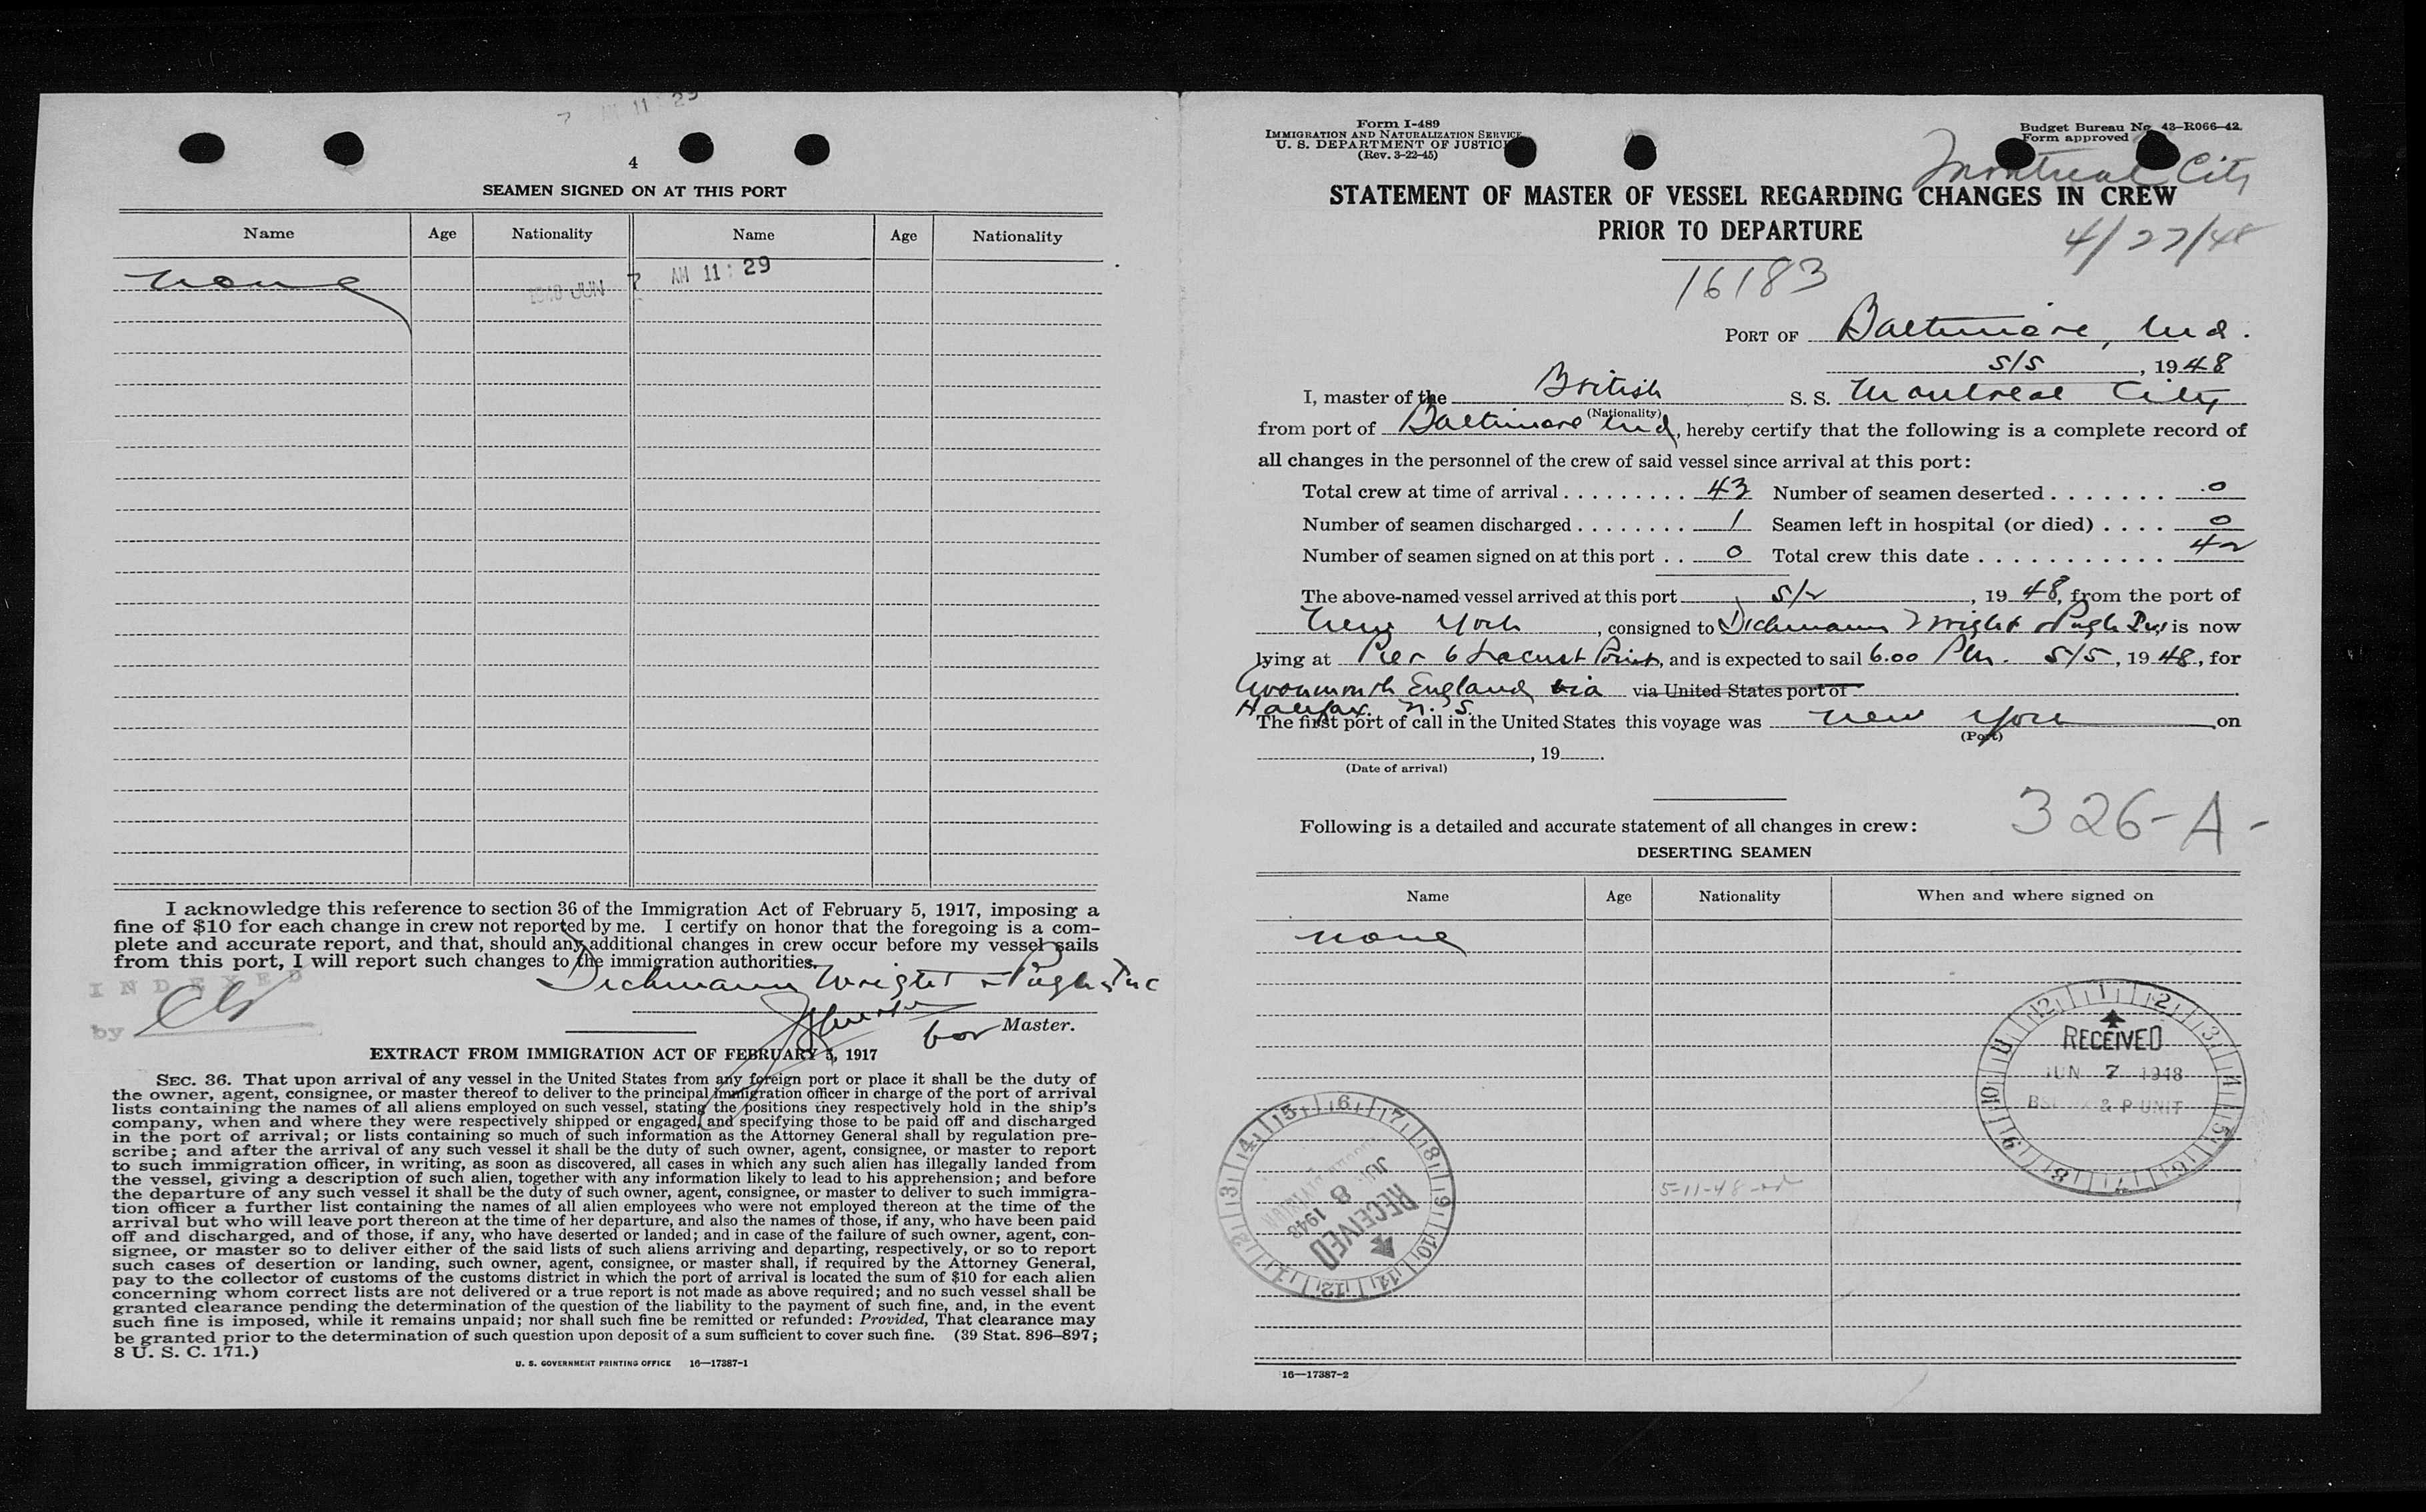 7 AM 11 29
4
SEAMEN SIGNED ON AT THIS PORT
Name Age Nationality Name Age Nationality
None
1948 JUN 7 AM 11:29
I acknowledge this reference to section 36 of the Immigration Act of February 5, 1917, imposing a
fine of $10 for each change in crew not reported by me. I certify on honor that the foregoing is a com-
plete and accurate report, and that, should any additional changes in crew occur before my vessel sails
from this port, I will report such changes to the immigration authorities.
INDEXED
by
Dichmann Wright & Pugh Inc
for Master.
EXTRACT FROM IMMIGRATION ACT OF FEBRUARY 5, 1917
SEC. 36. That upon arrival of any vessel in the United States from any foreign port or place it shall be the duty of
the owner, agent, consignee, or master thereof to deliver to the principal immigration officer in charge of the port of arrival
lists containing the names of all aliens employed on such vessel, stating the positions they respectively hold in the ship's
company, when and where they were respectively shipped or engaged, and specifying those to be paid off and discharged
in the port of arrival; or lists containing so much of such information as the Attorney General shall by regulation pre-
scribe; and after the arrival of any such vessel it shall be the duty of such owner, agent, consignee, or master to report
to such immigration officer, in writing, as soon as discovered, all cases in which any such alien has illegally landed from
the vessel, giving a description of such alien, together with any information likely to lead to his apprehension; and before
the departure of any such vessel it shall be the duty of such owner, agent, consignee, or master to deliver to such immigra-
tion officer a further list containing the names of all alien employees who were not employed thereon at the time of the
arrival but who will leave port thereon at the time of her departure, and also the names of those, if any, who have been paid
off and discharged, and of those, if any, who have deserted or landed; and in case of the failure of such owner, agent, con-
signee, or master so to deliver either of the said lists of such aliens arriving and departing, respectively, or so to report
such cases of desertion or landing, such owner, agent, consignee, or master shall, if required by the Attorney General,
pay to the collector of customs of the customs district in which the port of arrival is located the sum of $10 for each alien
concerning whom correct lists are not delivered or a true report is not made as above required; and no such vessel shall be
granted clearance pending the determination of the question of the liability to the payment of such fine, and, in the event
such fine is imposed, while it remains unpaid; nor shall such fine be remitted or refunded: Provided, That clearance may
be granted prior to the determination of such question upon deposit of a sum sufficient to cover such fine. (39 Stat. 896–897;
8 U. S. C. 171.)
U. S. GOVERNMENT PRINTING OFFICE 16—17387-1
Form I-489
IMMIGRATION AND NATURALIZATION SERVICE
U. S. DEPARTMENT OF JUSTICE
(Rev. 3-22-45)
Budget Bureau No. 43-R066-42.
Form approved
Montreal City
STATEMENT OF MASTER OF VESSEL REGARDING CHANGES IN CREW
PRIOR TO DEPARTURE
4/27/48
16183
PORT OF Baltimore, Md.
5/5, 1948
I, master of the British S. S. Montreal City
(Nationality)
from port of Baltimore Md, hereby certify that the following is a complete record of
all changes in the personnel of the crew of said vessel since arrival at this port:
Total crew at time of arrival . . . . . . . . . . 43 Number of seamen deserted . . . . . . . 0
Number of seamen discharged . . . . . . . . 1 Seamen left in hospital (or died) . . . . 0
Number of seamen signed on at this port . . 0 Total crew this date . . . . . . . . . . . 42
The above-named vessel arrived at this port 5/2, 1948, from the port of
New York, consigned to Dichmann Wright & Pugh Inc, is now
lying at Pier 6 Locust Point, and is expected to sail 6.00 PM. 5/5, 1948, for
Avonmouth England via via United States port of
Halifax. N. S.
The first port of call in the United States this voyage was New York on
(Port)
, 19 .
(Date of arrival)
326-A-
Following is a detailed and accurate statement of all changes in crew:
DESERTING SEAMEN
Name Age Nationality When and where signed on
None
RECEIVED
JUN 7 1948
& P UNIT
5-11-48
RECEIVED
JUN 8 1948
16—17387-2